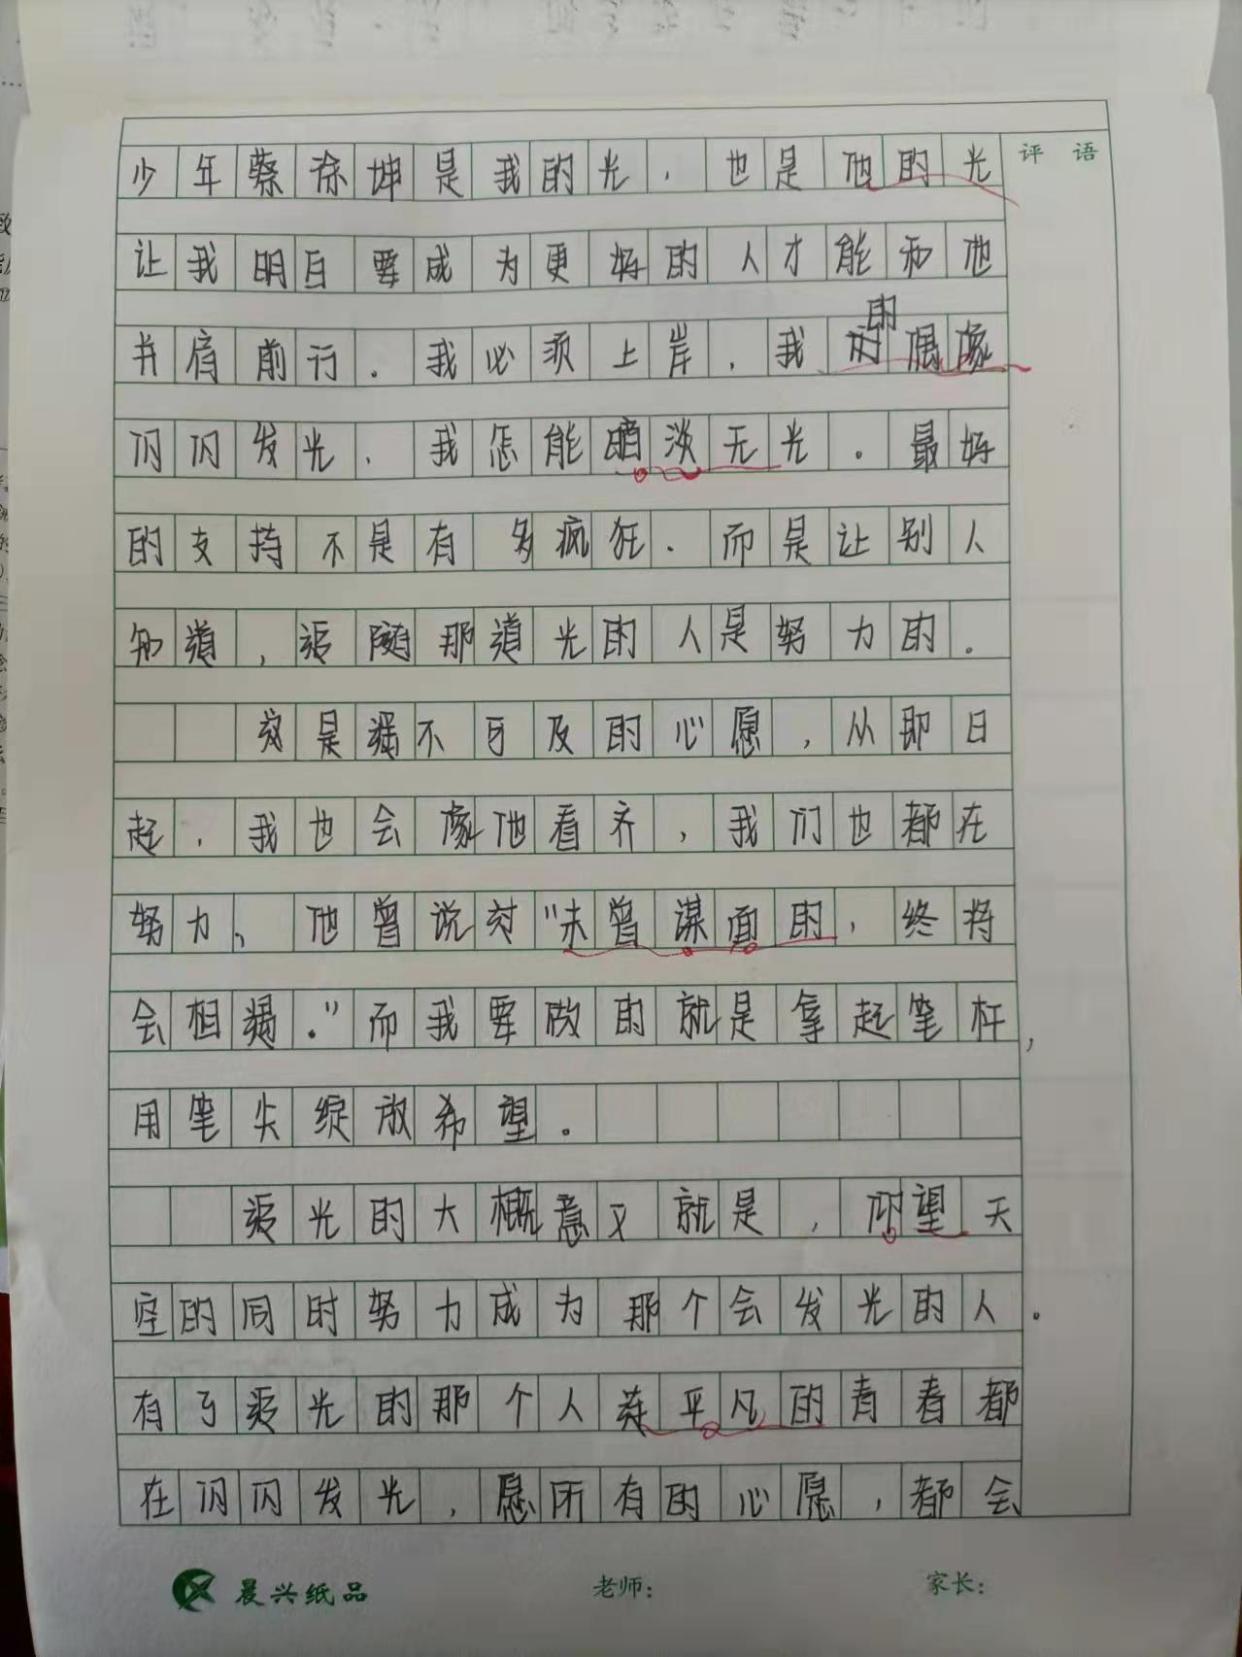 少年蔡徐坤是我的光，也是他的光
评语
让我明白要成为更好的人才能和他
并肩前行。我必须上岸，我的偶像
闪闪发光，我怎能暗淡无光。最好
的支持不是有多疯狂.而是让别人
知道，追随那道光的人是努力的。
这是遥不可及的心愿，从即日
起，我也会像他看齐，我们也都在
努力、他曾说过“未曾谋面的，终将
会相遇.”而我要做的就是拿起笔杆，
用笔尖绽放希望。
追光的大概意义就是，仰望天
空的同时努力成为那个会发光的人。
有了追光的那个人连平凡的青春都
在闪闪发光，愿所有的心愿，都会
晨兴纸品
老师：
家长：